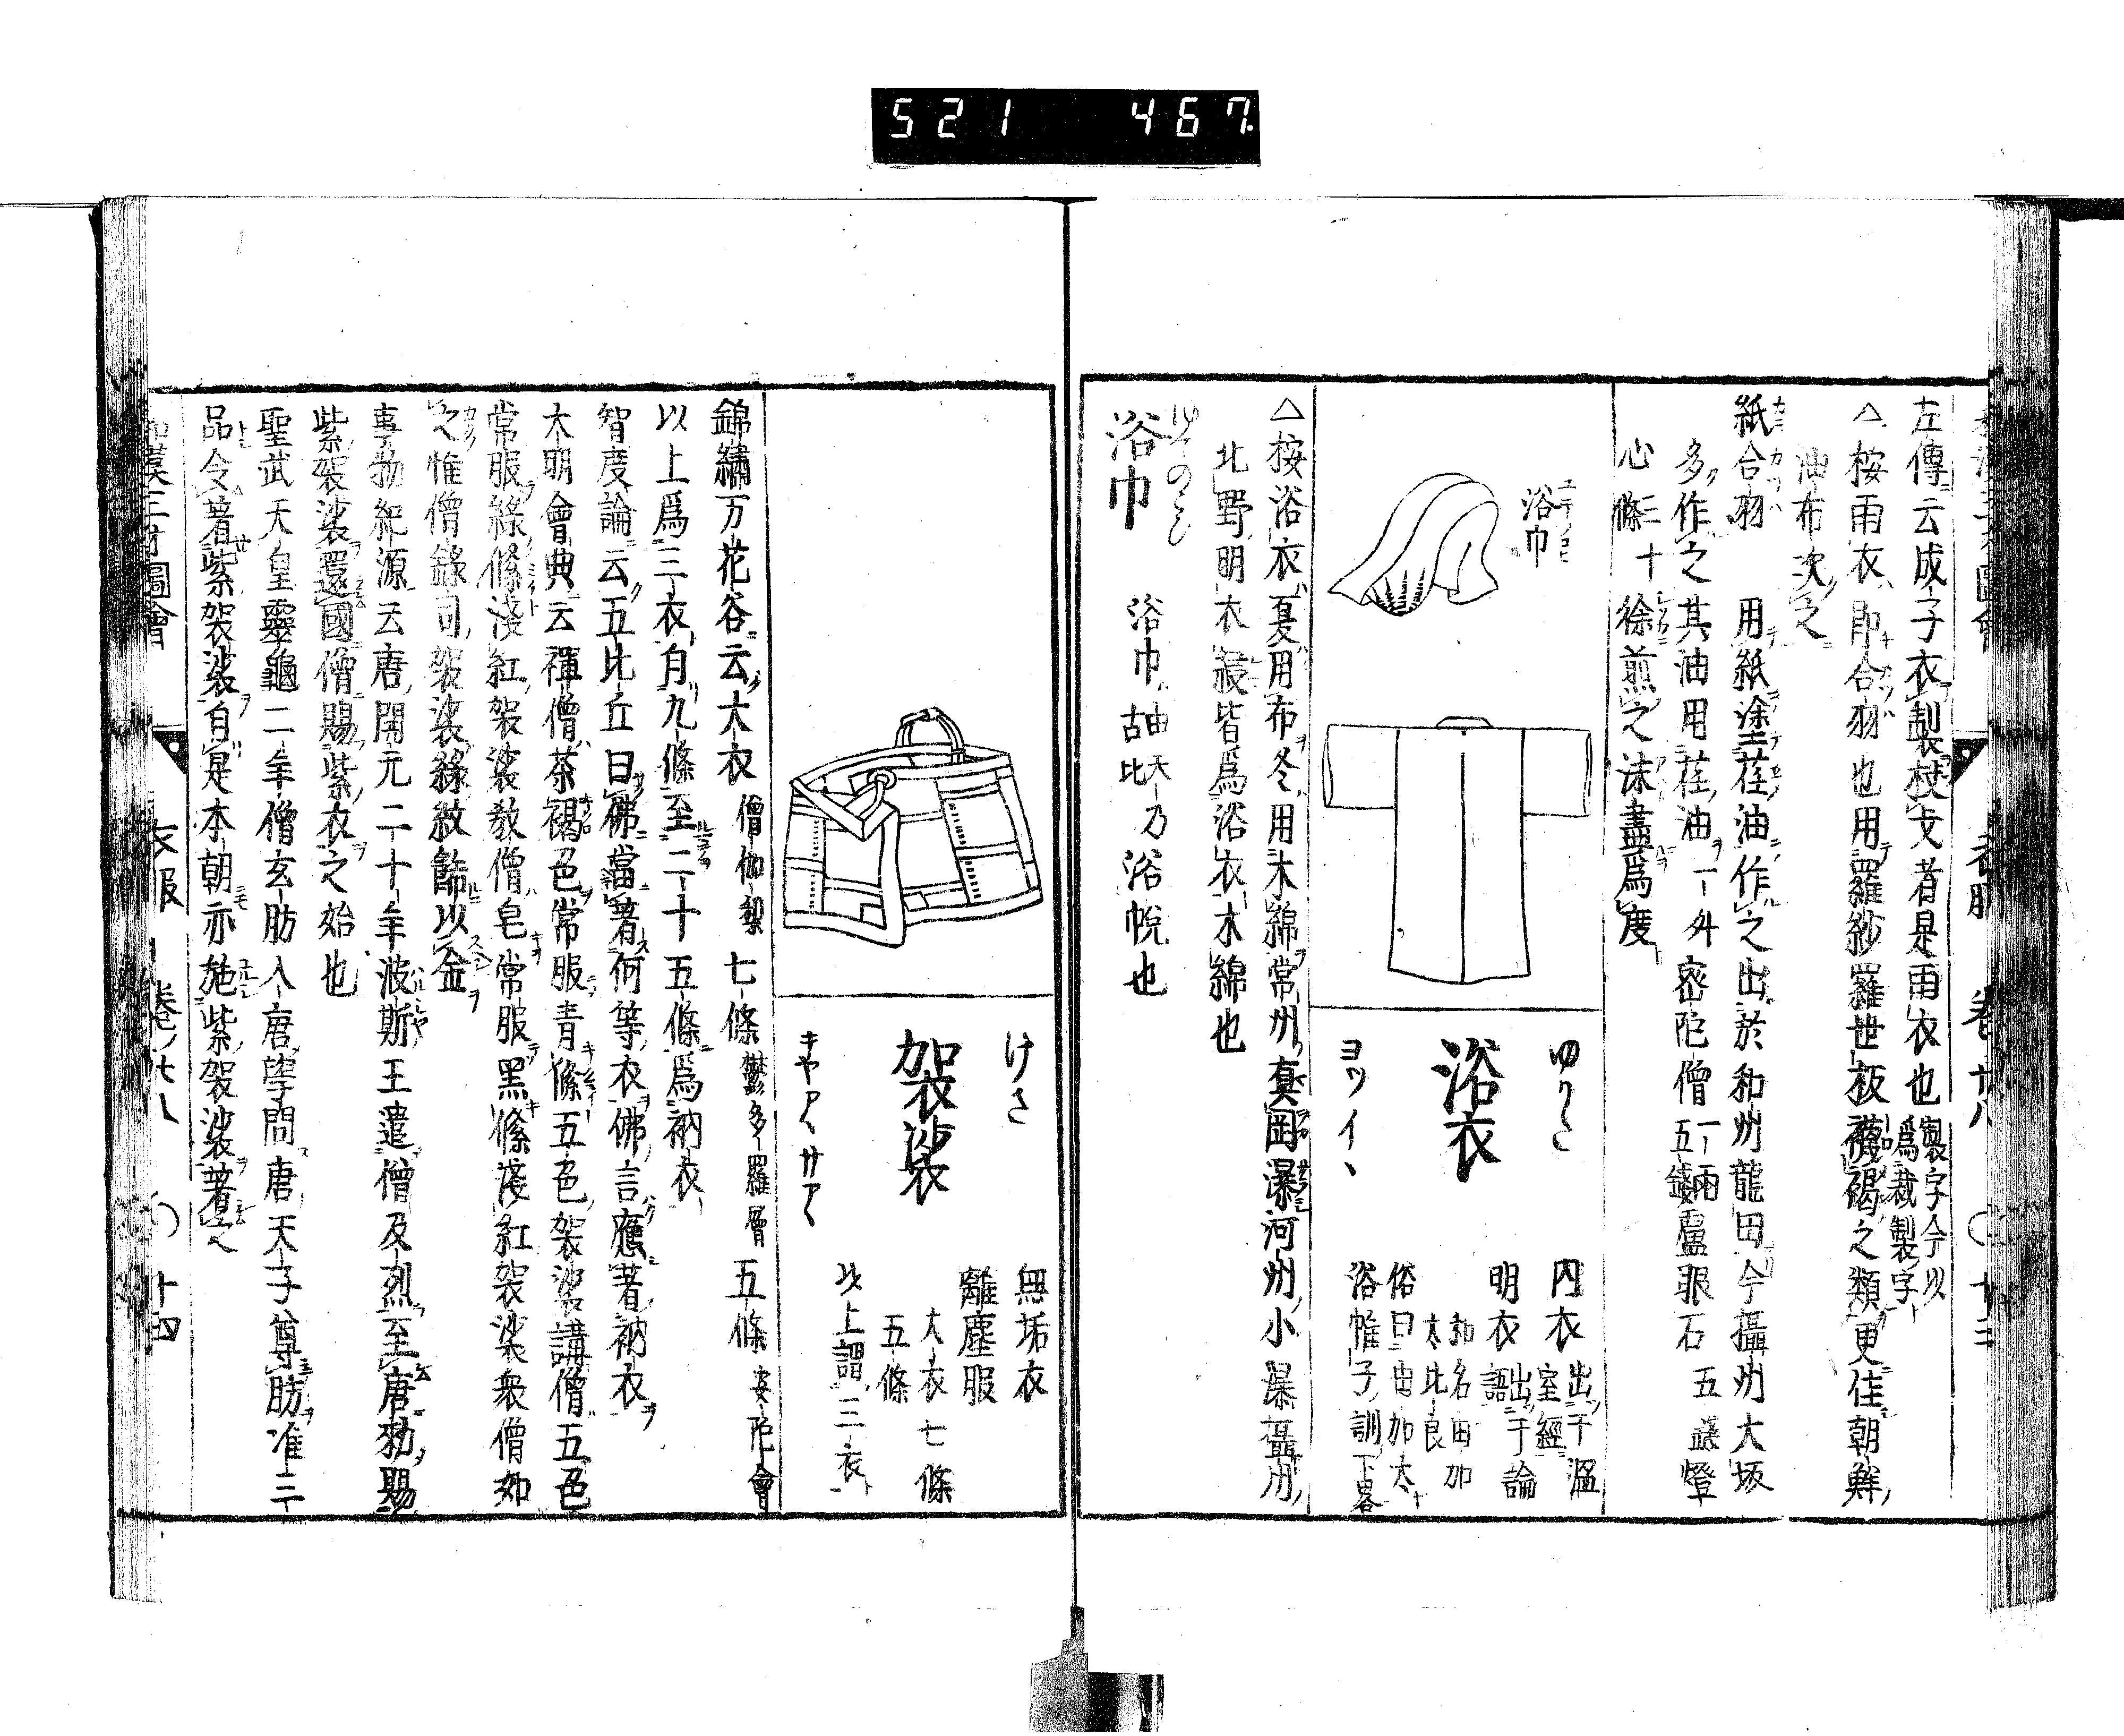 521 467
左傳云成子衣製杖戈者是雨衣也 製字今以
爲裁製字
△按雨衣即合羽也用羅紗羅世板襪褐之類更佳朝鮮
油布次之
紙合羽 用紙塗荏油作之出於和州龍田今攝州大坂
多作之其油用荏油一升密陀僧一兩五錢盧眼石五錢燈
心三十條徐煎之沫盡爲度
浴巾
浴衣
ヨツイ
内衣 出于溫室經
明衣 出于論語
和名由加太比良
俗曰由加太
浴帷子訓下畧
△按浴衣夏用布冬用木綿常州真岡瀑河州小瀑攝州
北野明衣祲皆爲浴衣木綿也
浴巾 浴巾由天乃古比乃浴帨也
けさ
袈裟
キヤアサアヽ
無垢衣
離塵服
大衣 七條
五條
以上謂三衣
錦繡万花谷云大衣 僧伽梨 七條 鬱多羅層 五條 安陀會
以上爲三衣自九條至二十五條爲衲衣
智度論云五比丘曰佛當著何等衣佛言應著衲衣
大明會典云禪僧茶褐色常服青絛五色袈裟講僧五色
常服綠絛淺紅袈裟教僧皂常服黑絛淺紅袈裟衆僧如
之惟僧錄司袈裟綠紋飾以金
事物紀源云唐開元二十年波斯王遣僧及烈至唐勑賜
紫袈裟還國僧賜紫衣之始也
聖武天皇靈龜二年僧玄昉入唐學問唐天子尊昉准三
品令著紫袈裟自是本朝亦施紫袈裟著之
和漢三才圖會 衣服 卷ノ廿八 ○ 廿四